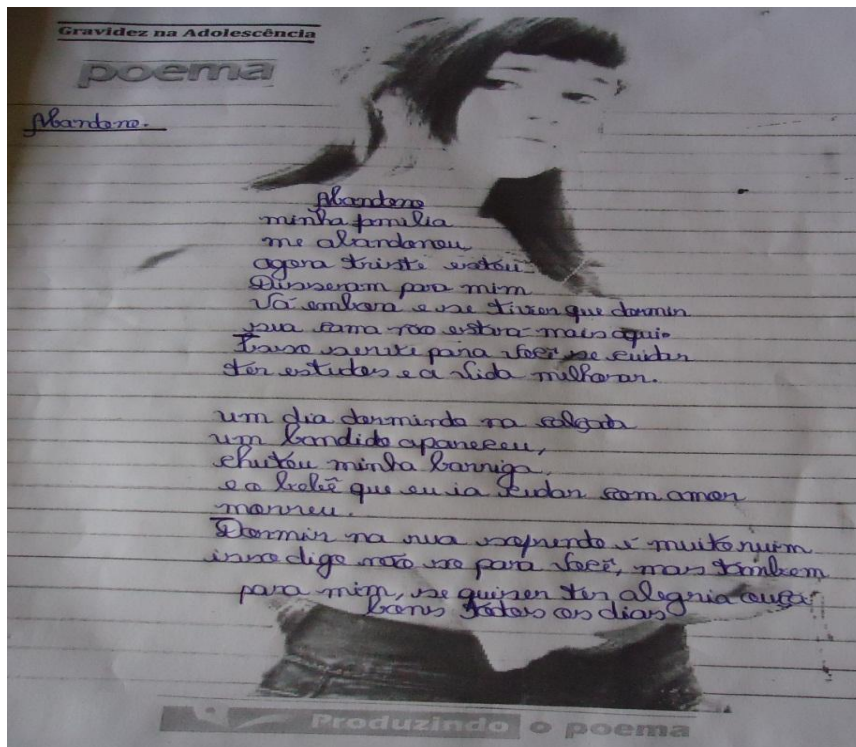 Gravidez na Adolescência
poema
Abandono.
Abandono
minha familia
me abandonou
agora triste estou.
Disseram para mim
Vá embora e se tiver que dormir
sua cama não estará mais aqui.
Isso serve para você se cuidar
ter estudos e a vida milhorar.
um dia dormindo na calçada
um bandido apareceu,
chutou minha barriga,
e o bebê que eu ia cuidar com amor
morreu.
Dormir na rua sofrendo é muito ruim
isso digo não so para você, mas também
para mim, se quiser ter alegria
Todos os dias
Produzindo o poema